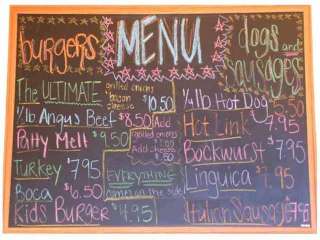 burgers
MENU
dogs and
sausages
The ULTIMATE
grilled onions
bacon
cheese
$10.50
1/2 lb Angus Beef $8.50
Patty Melt $9.50
Turkey $7.95
Boca $6.50
Kids Burger $4.95
Add
grilled onions
Add cheese
EVERYTHING
comes on the side
1/4 lb Hot Dog 5.50
Hot Link 7.95
Bockwurst $7.95
Linguica $7.95
Italian Sausage 7.95